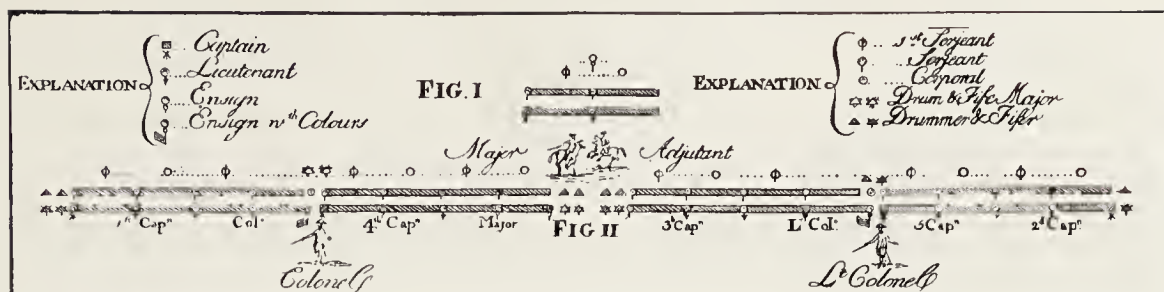 EXPLANATION
Captain
Lieutenant
Ensign
Ensign wth Colours
FIG. I
EXPLANATION
1st Serjeant
Serjeant
Corporal
Drum & Fife Major
Drummer & Fifer
Major
Adjutant
1st Capn
Coll.
4th Capn
Major
FIG II
3d Capn
Lt Coll.
5 Capn
2d Capn
Colonel
Lt Colonel